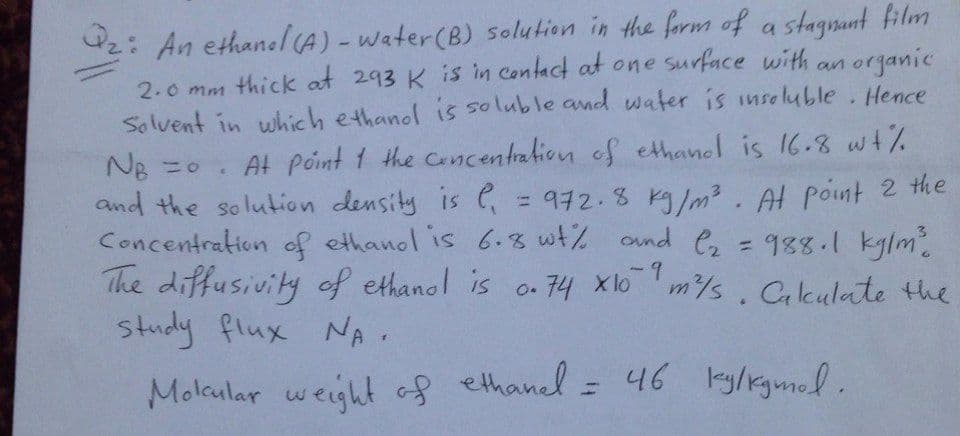 Q2: An ethanol (A) - water (B) solution in the form of a stagnant film
2.0 mm thick at 293 K is in contact at one surface with an organic
Solvent in which ethanol is soluble and water is insoluble. Hence
NB = 0. At point 1 the concentration of ethanol is 16.8 wt%
and the solution density is ρ1 = 972.8 kg/m³. At point 2 the
Concentration of ethanol is 6.8 wt% and ρ2 = 988.1 kg/m³.
The diffusivity of ethanol is 0.74 x10⁻⁹ m²/s. Calculate the
study flux NA.
Molcular weight of ethanol = 46 kg/kgmol.